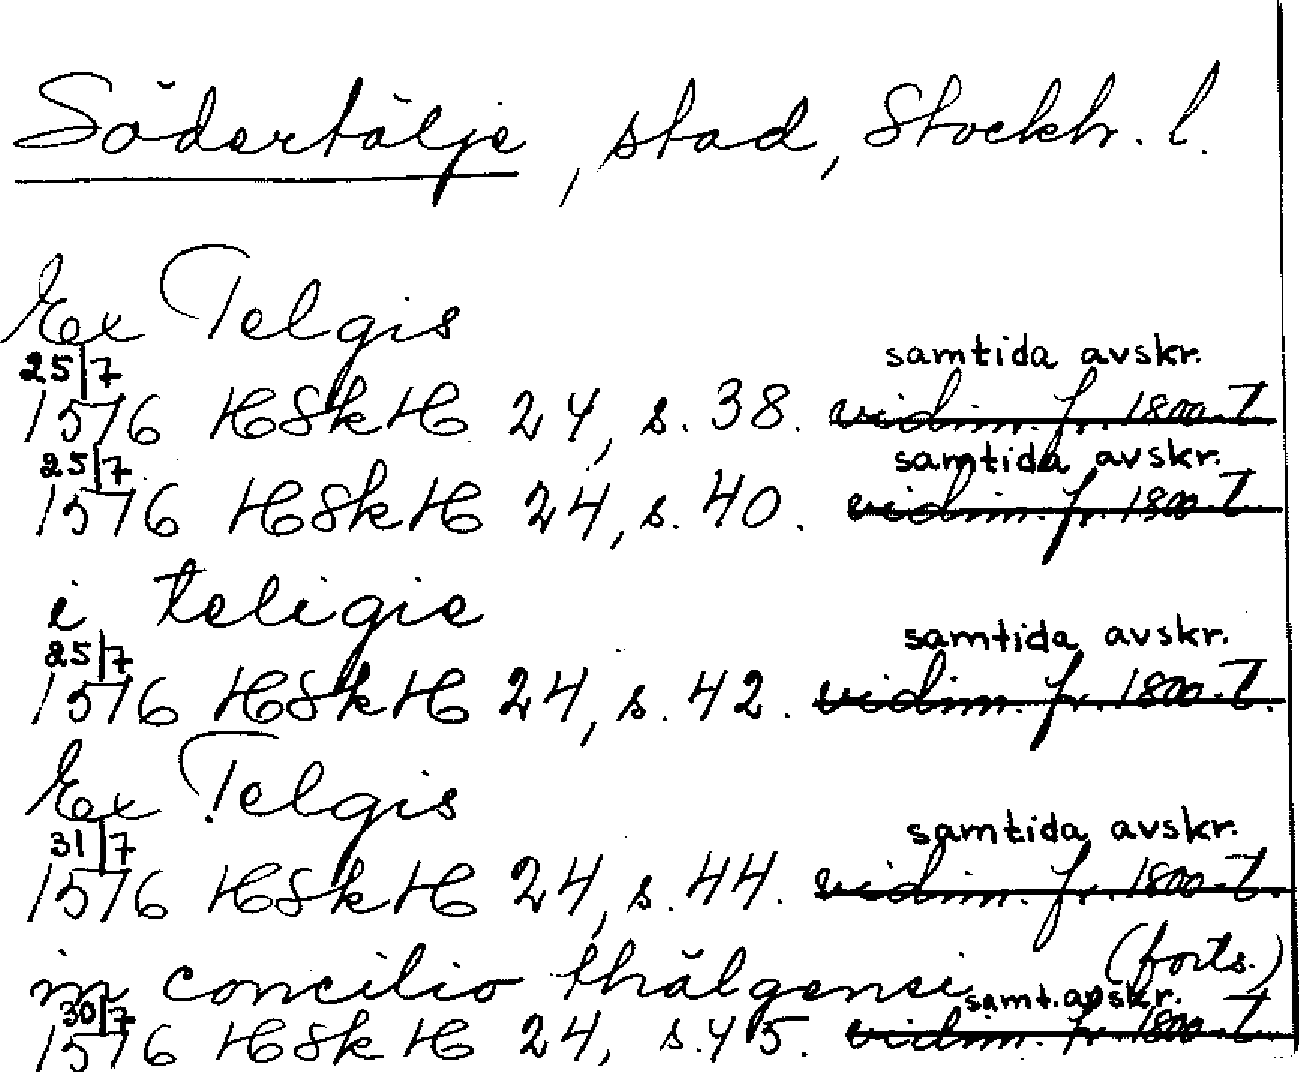 Södertälje, stad, Stockh. l.
Ex Telgis
25/7 samtida avskr.
1576 HSkH 24, s. 38. vidim. fr. 1800-t.
25/7 samtida avskr.
1576 HSkH 24, s. 40. vidim. fr. 1800-t.
i teligie
25/7 samtida avskr.
1576 HSkH 24, s. 42. vidim. fr. 1800-t.
Ex Telgis
31/7 samtida avskr.
1576 HSkH 24, s. 44. vidim. fr. 1800-t.
in concilio thälgensi (forts.)
30/7 samt. avskr.
1576 HSkH 24, s. 45. vidim. fr. 1800-t.